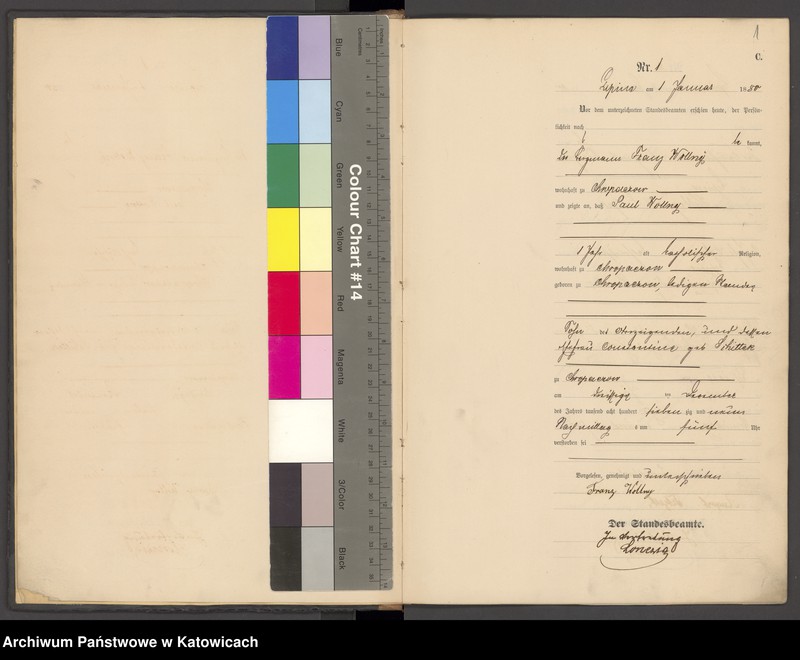 Blue
Cyan
Green
Yellow
Red
Magenta
White
3/Color
Black
Colour Chart #14
Centimetres
Inches
1
C.
Nr. 1
Lipine am 1 Januar 1880
Vor dem unterzeichneten Standesbeamten erschien heute, der Persön-
lichkeit nach
be kannt,
der Bergmann Franz Wollny
wohnhaft zu Chropaczow
und zeigte an, daß Paul Wollny
1 Jahr alt katholischer Religion,
wohnhaft zu Chropaczow
geboren zu Chropaczow, ledigen Standes
Sohn des Anzeigenden, und dessen
Ehefrau Constantine geb
zu Chropaczow
am dreißigsten Dezember
des Jahres tausend acht hundert sieben zig und neun
Nachmittag s um fünf Uhr
verstorben sei
Vorgelesen, genehmigt und unterschrieben
Franz Wollny
Der Standesbeamte.
In Vertretung
Archiwum Państwowe w Katowicach